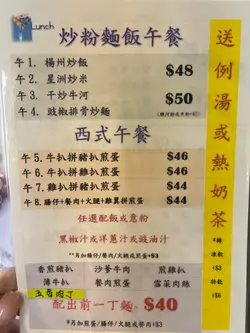 Lunch
炒粉麵飯午餐
午1. 揚州炒飯
午2. 星洲炒米
$48
午3. 干炒牛河
午4. 豉椒排骨炒麵
$50
西式午餐
午5. 牛扒拼豬扒煎蛋 $46
午6. 牛扒拼雞扒煎蛋 $46
午7. 雞扒拼豬扒煎蛋 $44
午8. 腸仔+餐肉+火腿+雞翼拼煎蛋 $44
任選配飯或意粉
黑椒汁或洋蔥汁或豉油汁
**另加腸仔/餐肉/火腿或煎蛋+$3
香煎豬扒 沙爹牛肉 煎雞扒
薄牛扒 餐肉煎蛋 雪菜肉絲
五香肉丁
配出前一丁麵 $40
*另加煎蛋/腸仔/火腿或餐肉+$3
送例湯或熱奶茶
凍飲
+$3